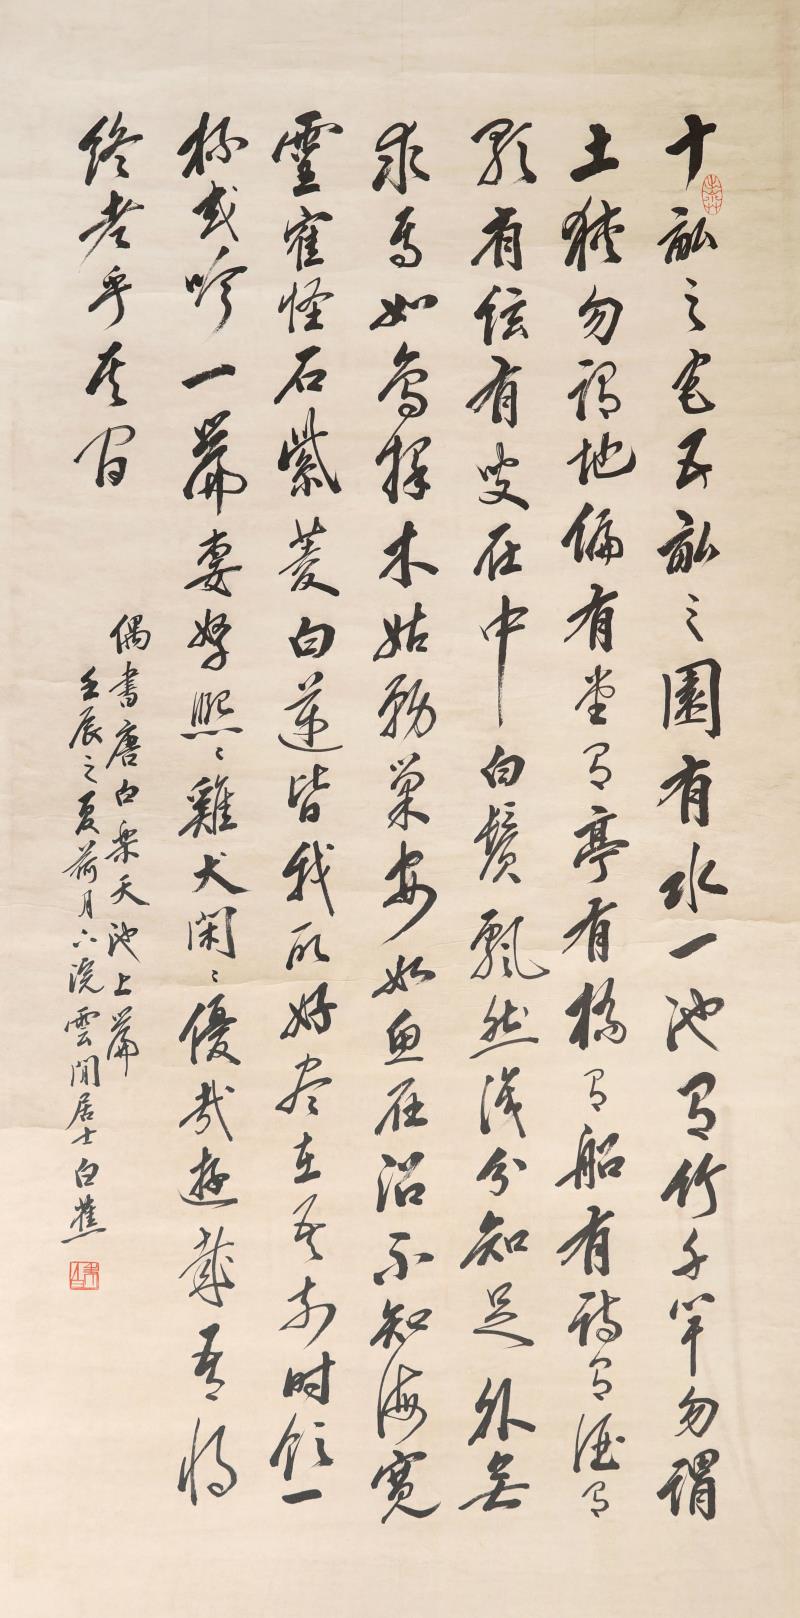 十畝之宅五畝之園有水一池有竹千竿勿謂
土狹勿謂地偏有堂有亭有橋有船有詩有酒有
歌有弦有叟在中白鬚飄然淺分知足外無
求焉如鳥擇木姑務巢安如魚在沼不知海寬
靈寉怪石紫菱白蓮皆我所好尽在吾前时飲一
杯或吟一篇妻孥熙〻雞犬閑〻優哉游哉吾將
終老乎其間
偶書唐白樂天池上篇
壬辰之夏荷月六浣雲間居士白蕉